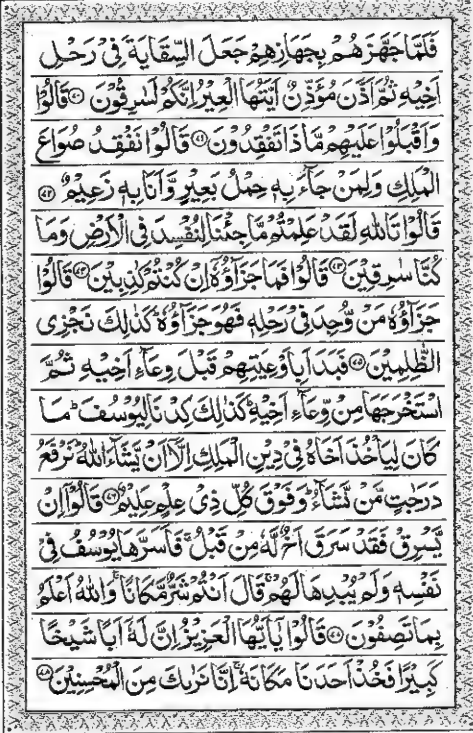 فَلَمَّا جَهَّزَهُمْ بِجَهَازِهِمْ جَعَلَ السِّقَايَةَ فِىْ رَحْلِ
اَخِيْهِ ثُمَّ اَذَّنَ مُؤَذِّنٌ اَيَّتُهَا الْعِيْرُ اِنَّكُمْ لَسٰرِقُوْنَ ۝۷۰ قَالُوْا
وَاَقْبَلُوْا عَلَيْهِمْ مَّاذَا تَفْقِدُوْنَ ۝۷۱ قَالُوْا نَفْقِدُ صُوَاعَ
الْمَلِكِ وَلِمَنْ جَآءَ بِهٖ حِمْلُ بَعِيْرٍ وَّاَنَا بِهٖ زَعِيْمٌ ۝۷۲
قَالُوْا تَاللّٰهِ لَقَدْ عَلِمْتُمْ مَّا جِئْنَا لِنُفْسِدَ فِى الْاَرْضِ وَمَا
كُنَّا سٰرِقِيْنَ ۝۷۳ قَالُوْا فَمَا جَزَآؤُهٗۤ اِنْ كُنْتُمْ كٰذِبِيْنَ ۝۷۴ قَالُوْا
جَزَآؤُهٗ مَنْ وُّجِدَ فِىْ رَحْلِهٖ فَهُوَ جَزَآؤُهٗ كَذٰلِكَ نَجْزِى
الظّٰلِمِيْنَ ۝۷۵ فَبَدَاَ بِاَوْعِيَتِهِمْ قَبْلَ وِعَآءِ اَخِيْهِ ثُمَّ
اسْتَخْرَجَهَا مِنْ وِّعَآءِ اَخِيْهِ كَذٰلِكَ كِدْنَا لِيُوْسُفَ مَا
كَانَ لِيَاْخُذَ اَخَاهُ فِىْ دِيْنِ الْمَلِكِ اِلَّاۤ اَنْ يَّشَآءَ اللّٰهُ نَرْفَعُ
دَرَجٰتٍ مَّنْ نَّشَآءُ وَفَوْقَ كُلِّ ذِىْ عِلْمٍ عَلِيْمٌ ۝۷۶ قَالُوْۤا اِنْ
يَّسْرِقْ فَقَدْ سَرَقَ اَخٌ لَّهٗ مِنْ قَبْلُ فَاَسَرَّهَا يُوْسُفُ فِىْ
نَفْسِهٖ وَلَمْ يُبْدِهَا لَهُمْ قَالَ اَنْتُمْ شَرٌّ مَّكَانًا وَاللّٰهُ اَعْلَمُ
بِمَا تَصِفُوْنَ ۝۷۷ قَالُوْا يٰۤاَيُّهَا الْعَزِيْزُ اِنَّ لَهٗۤ اَبًا شَيْخًا
كَبِيْرًا فَخُذْ اَحَدَنَا مَكَانَهٗ اِنَّا نَرٰىكَ مِنَ الْمُحْسِنِيْنَ ۝۷۸